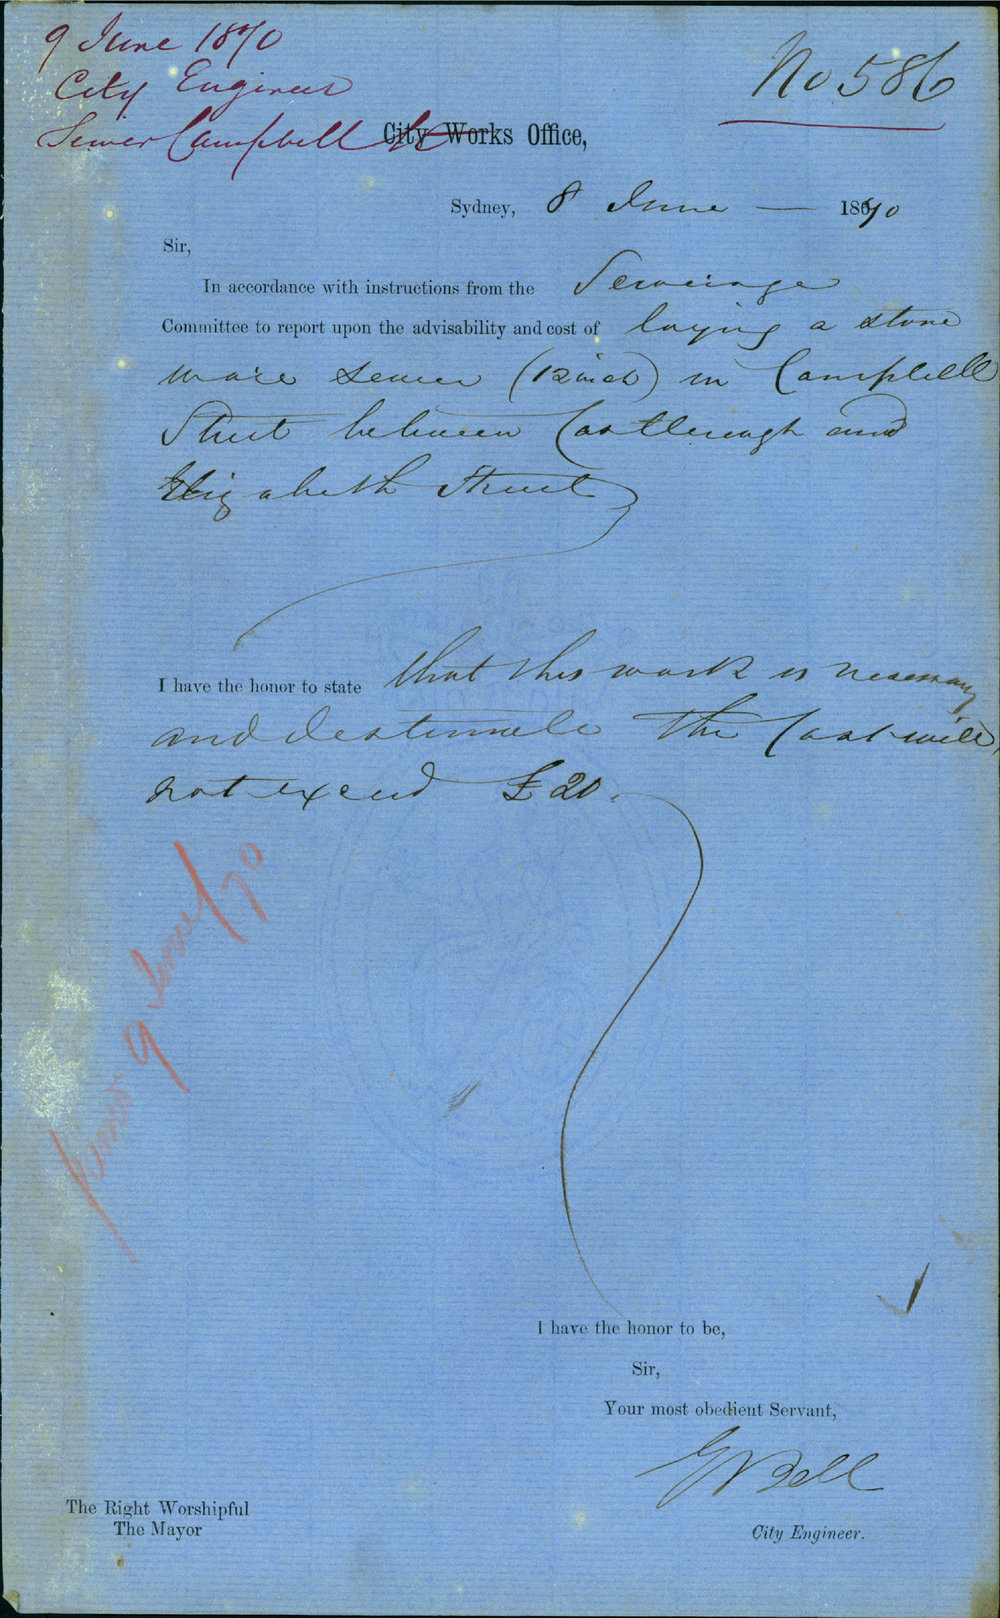 9 June 1870
City Engineer
Sewer Campbell St
No 586
City Works Office,
Sydney, 8 June — 1870
Sir,
In accordance with instructions from the Sewerage
Committee to report upon the advisability and cost of laying a stone
ware sewer (12 inch) in Campbell
Street between Castlereagh and
Elizabeth Street
I have the honor to state that this work is necessary
and I estimate the Cost will
not exceed £20.
9 June/70
I have the honor to be,
Sir,
Your most obedient Servant,
Bell
The Right Worshipful
The Mayor
City Engineer.